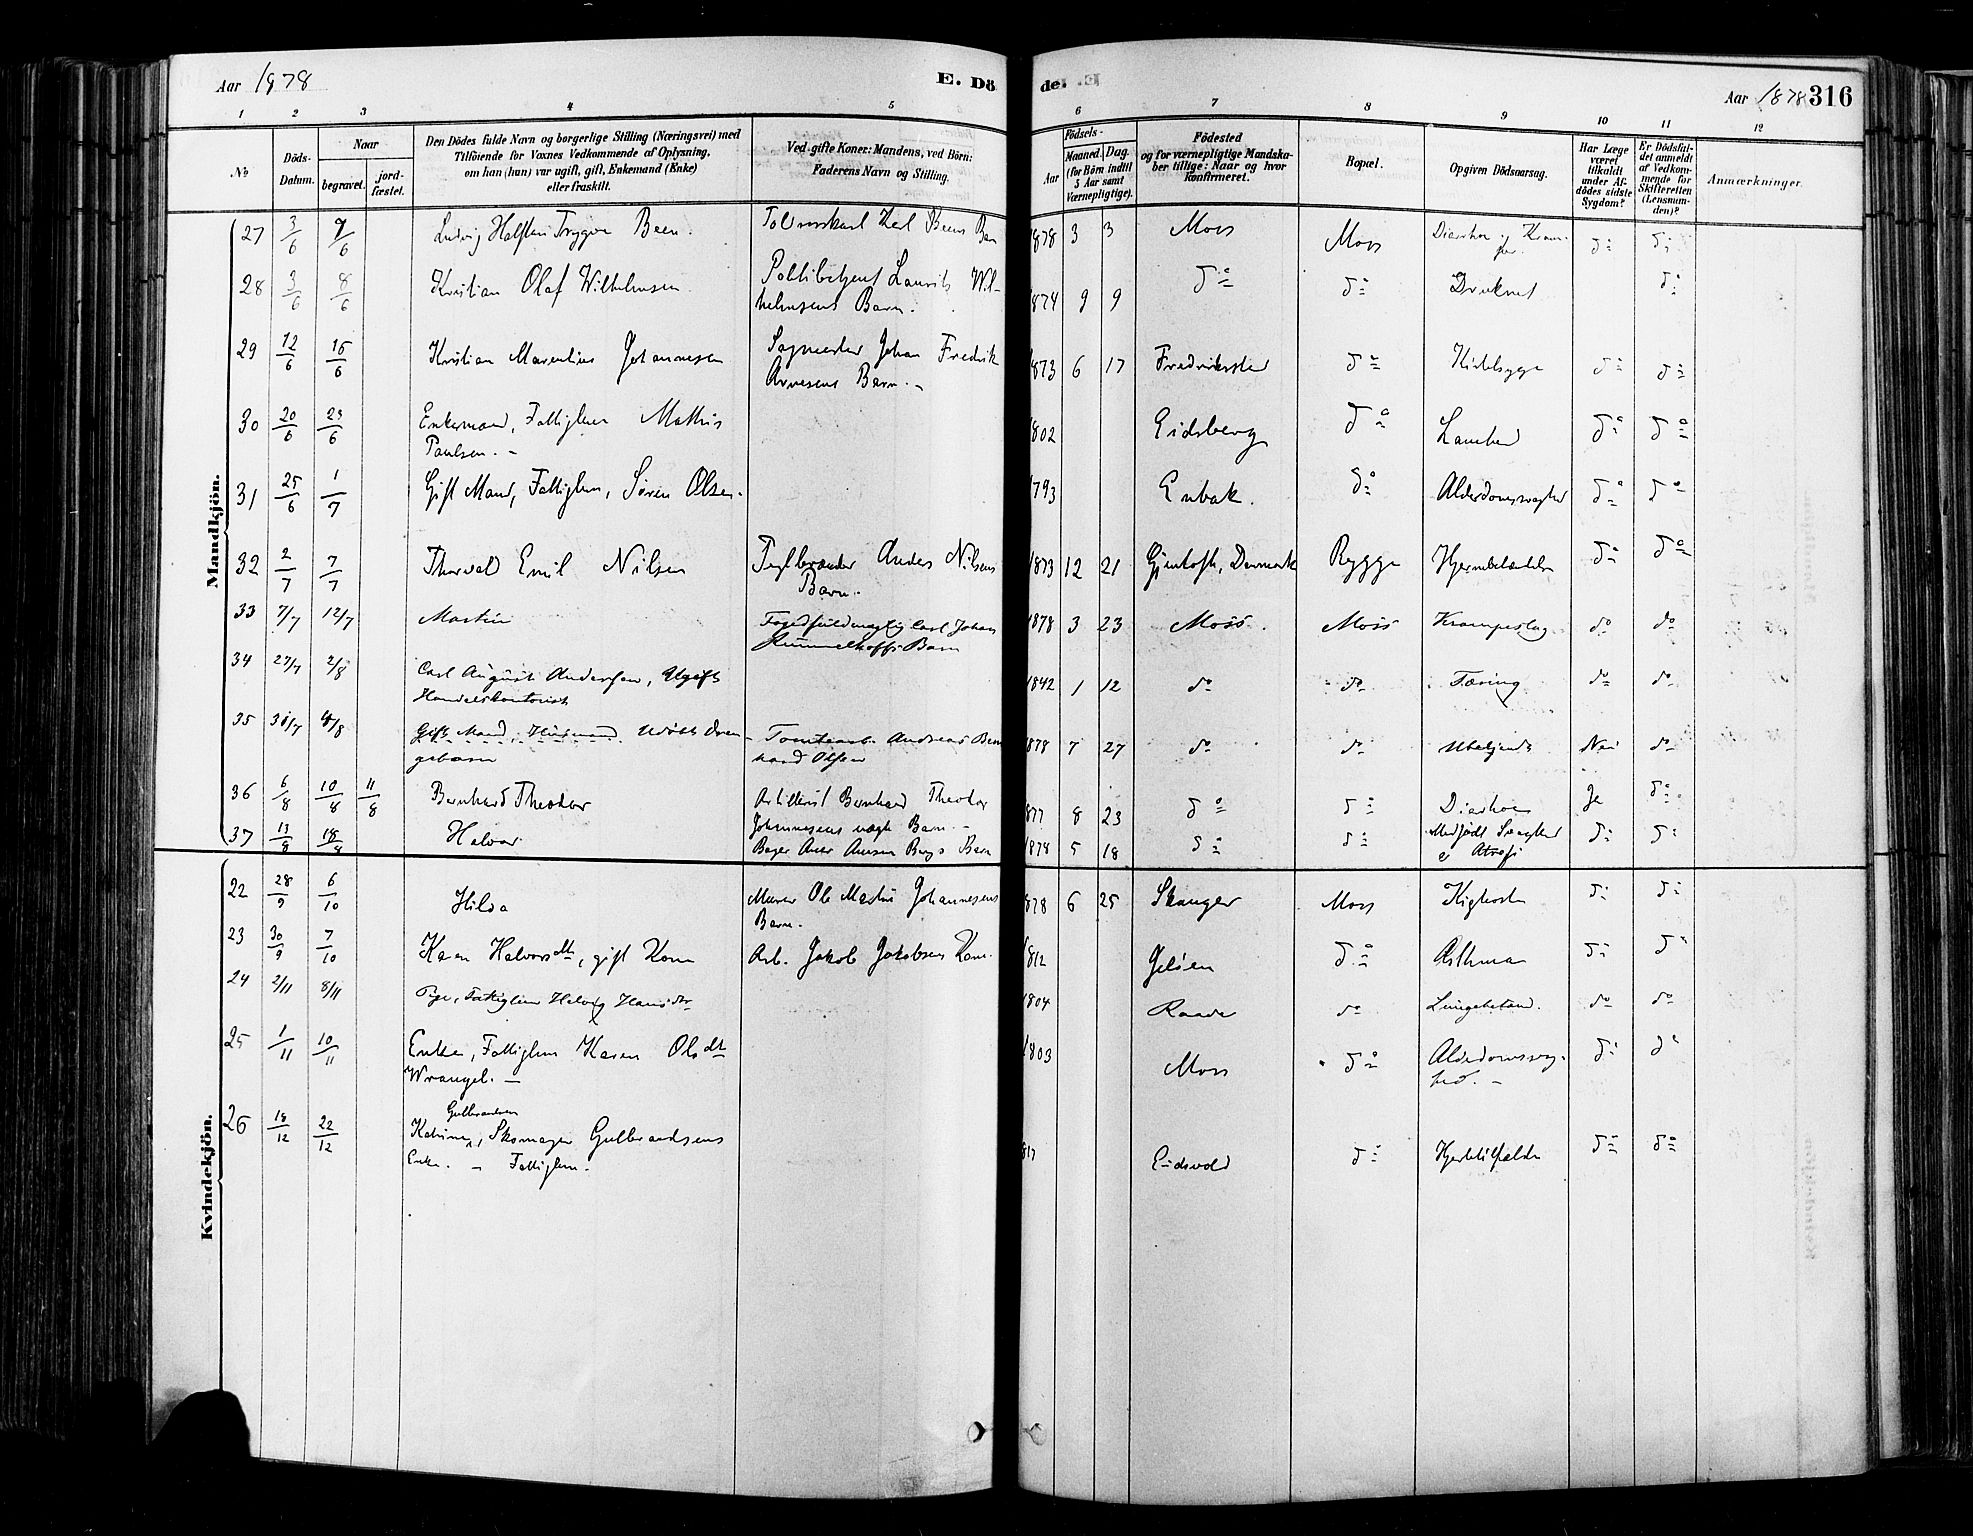 Aar 1878
E. Dö
de. E.
Aar 1878 316
1 2 3 4 5 6 7 8 9 10 11 12
No
Döds-Datum.
Naar
begravet.
jord-fæstet.
Den Dödes fulde Navn og borgerlige Stilling (Næringsvei) med
Tilföiende for Voxnes Vedkommende af Oplysning,
om han (hun) var ugift, gift, Enkemand (Enke)
eller fraskilt.
Ved gifte Koner: Mandens, ved Börn:
Faderens Navn og Stilling.
Födsels-
Aar
Maaned. Dag.
(for Börn indtil
5 Aar samt
Værnepligtige).
Födested
og for værnepligtige Mandska-
ber tillige: Naar og hvor
konfirmeret.
Bopæl.
Opgiven Dödsaarsag.
Har Læge
været
tilkaldt
under Af-
dödes sidste
Sygdom?
Er Dödsfal-
det anmeldt
af Vedkom-
mende for
Skifteretten
(Lensman-
den)?
Anmærkninger.
Mandkjön.
27 3/6 7/6 Ludvig Halfdan Trygve Been. Karl Beens Barn 1878 3 3 Moss Moss Diarrhoe og Kram-
per do do
28 3/6 8/6 Kristian Olaf Wilhelmsen Politibetjent Laurits Wil-
helmsens Barn. 1874 9 9 do do Druknet do
29 12/6 16/6 Kristian Marentius Johannesen Sagmester Johan Fredrik
Arnesens Barn. 1873 6 17 Fredriksstad do Kirtelsyge do do
30 20/6 24/6 Enkemand, Fattiglem Mathis
Paulsen. 1802 Eidsberg do Lamhed do do
31 25/6 1/7 Gift Mand, Fattiglem, Søren Olsen. 1793 Enebak. do Alderdomssvaghed do do
32 2/7 7/7 Thorvald Emil Nilsen Teglbrænder Anders Nilsens
Barn. 1873 12 21 Gjentofte, Danmark Rygge Hjernebetændelse do do
33 7/7 12/7 Martin Fogedfuldmægtig Carl Johan
Hummelhoffs Barn 1878 3 23 Moss. Moss Krampeslag do do
34 27/7 2/8 Carl August Andersen, Ugift
Handelskontorist 1842 1 12 do do Tæring do do
35 Gift Mand, Husmand Udöbt Dren-
gebarn Tomtearb. Andreas Bern
hard Olsen 1878 7 27 do do Ubekjendt Nei do
36 6/8 10/8 11/8 Bernhard Theodor Artillerist Bernhard Theodor
Johannesens uægte Barn. 1877 8 23 do do Diarhoe Ja do
37 13/8 18/8 Halvor Bager Barn 1878 5 18 do do Medfödt Svaghed
& Atrofi do do
Kvindekjön.
22 28/9 6/10 Hilda Murer Ole Martin Johannesens
Barn. 1878 6 25 Stanger Moss Kighoste do do
23 30/9 7/10 Karen Halvorsdtr, gift Kone Arb. Jakob Jakobsens Kone. 1812 Jeløen do Asthma do do
24 2/11 8/11 Pige, Fattiglem Helvig Hansdtr 1804 Raade do Lungebetænd. do do
25 1/11 10/11 Enke, Fattiglem Karen Olsdtr
Wrangel. 1803 Moss do Alderdomssvag-
hed. do do
Gulbrandsen
26 18/12 22/12 Katrine, Skomager Gulbrandsens
Enke. Fattiglem. 1817 Eidsvold do Hjertetilfælde do do